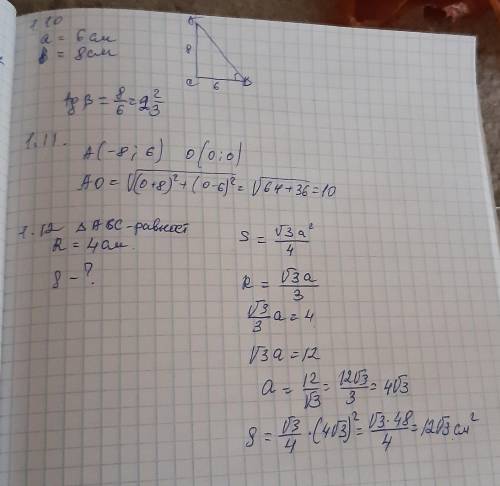 1.10
a = 6 см
b = 8 см
8
C
6
tg β = 8/6 = 2 2/3
1.11.
A(-8; 6) O(0; 0)
AO = √((0+8)²+(0-6)²) = √(64+36) = 10
1.12 △ABC - равност
R = 4 см.
S - ?
S = √3a²/4
R = √3a/3
√3/3 a = 4
√3a = 12
a = 12/√3 = 12√3/3 = 4√3
S = √3/4 · (4√3)² = √3·48/4 = 12√3 см²